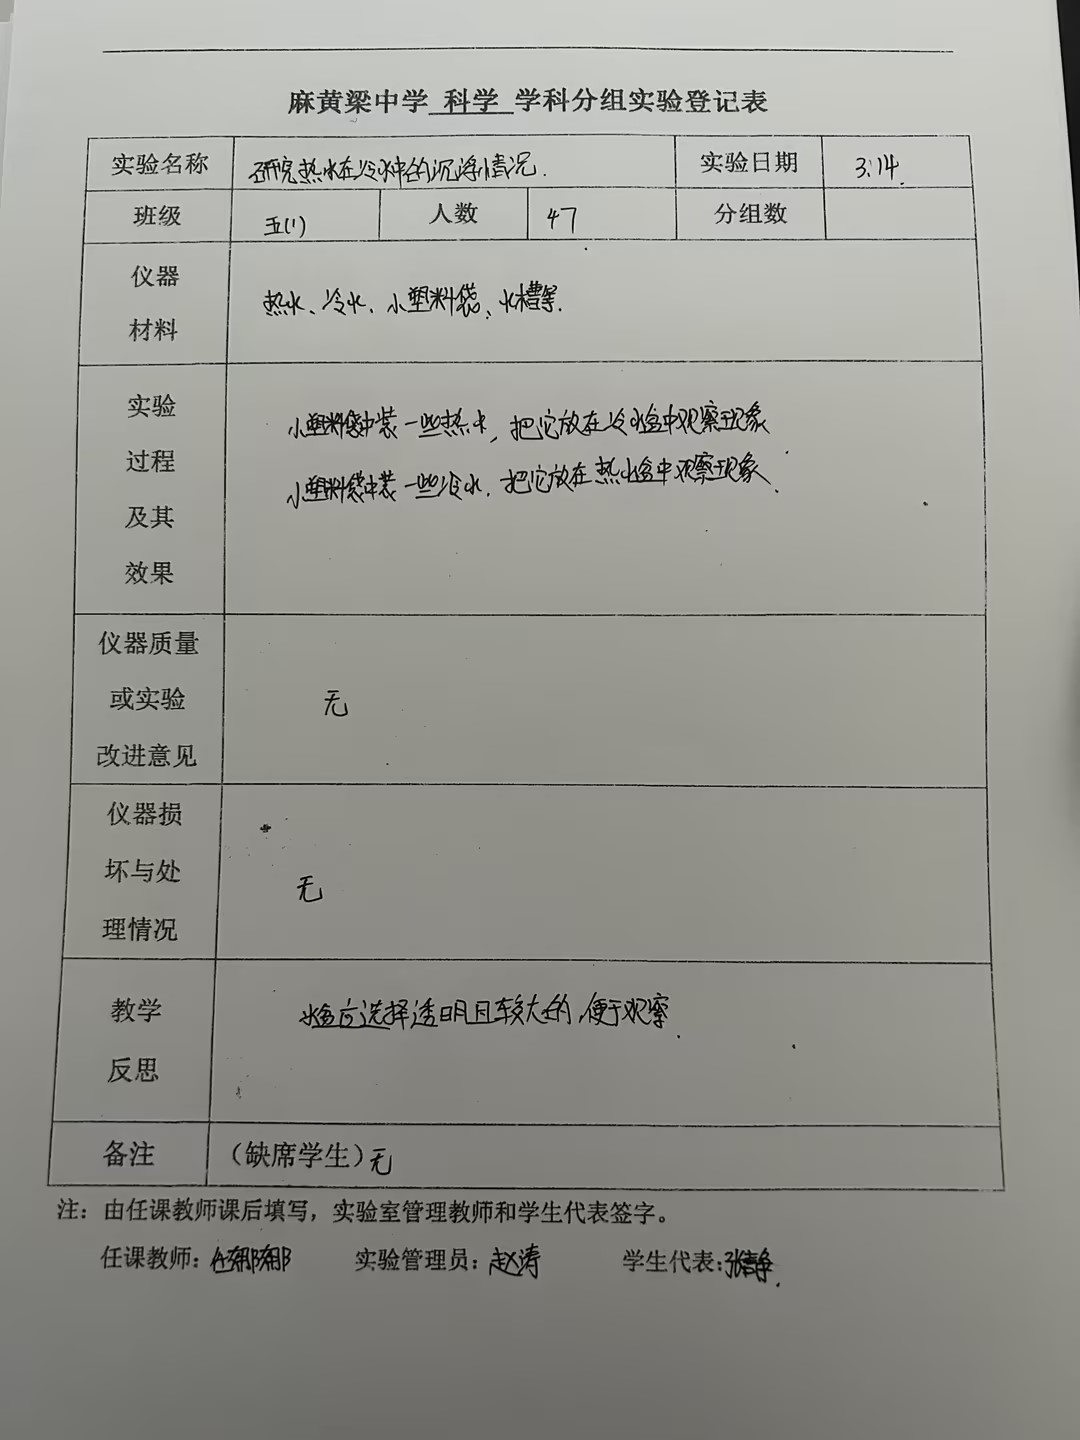 麻黄梁中学 科学 学科分组实验登记表
实验名称 研究热水在冷水中的沉浮情况. 实验日期 3.14.
班级 五(1) 人数 47 分组数
仪器
材料
热水、冷水、小塑料袋、水槽等.
实验
过程
及其
效果
小塑料袋中装一些热水,把它放在冷水盒中观察现象
小塑料袋中装一些冷水.把它放在热水盒中观察现象.
仪器质量
或实验
改进意见
无
仪器损
坏与处
理情况
无
教学
反思
水盒应选择透明且较大的,便于观察.
备注 (缺席学生)无
注：由任课教师课后填写，实验室管理教师和学生代表签字。
任课教师：任娜娜 实验管理员：赵涛 学生代表:张静.